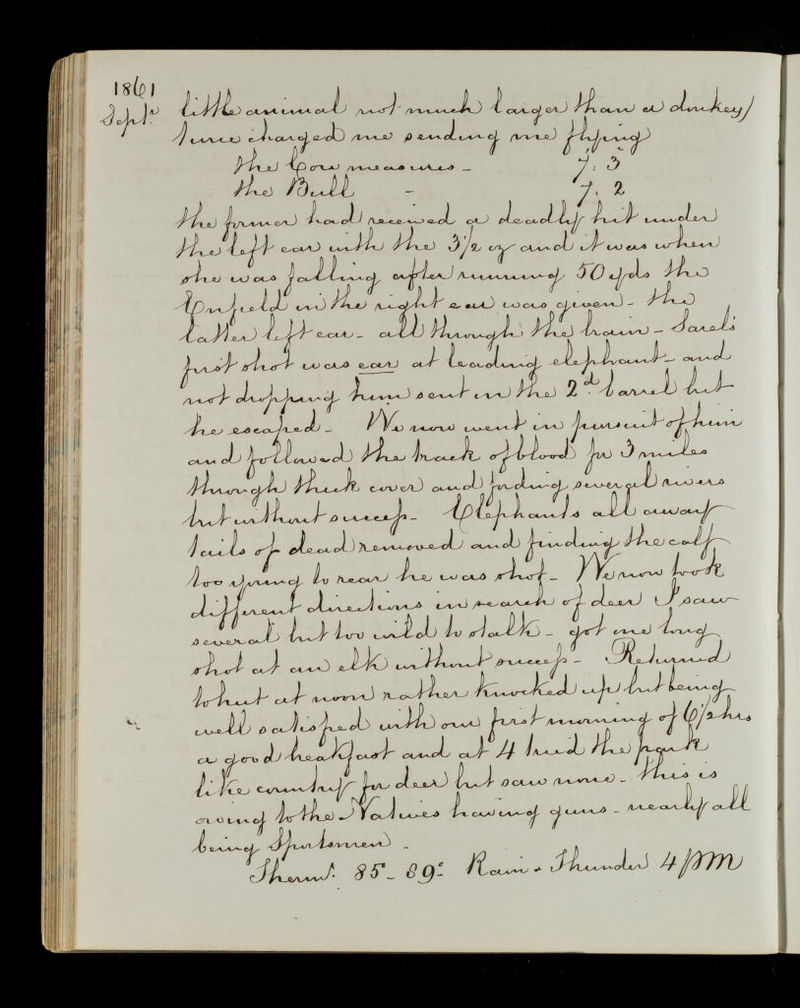 1861
Septr. little animal not much larger than a donkey)
twice charged me sending me flying
The Cow measures - 7. 3
The Bull - 7. 2
the former had received a deadly hit under
the left ear with the 3½ oz and it was when
she was falling after running 50 yds the
Enfield in the right ear was given - the
latter left ear - all through the brain - Sarel's
first shot was ear at leading elephant - and
not dropping him sent in the 2d. barrel but
he escaped - We now went in pursuit of him
and followed the track of blood for 3 miles
through thick cover and fording several rivers
but without success - Elephants all away
tails of dead removed and finding the calf
too young to rear he was shot - We now took
different directions in search of deer I saw
several but too wild to stalk - got one long
shot at an elk without success - Returned
to hut at noon rather knocked up but being
well satisfied with our first morning of 6½ hrs
a good breakfast and at 4 tried the park
like country for deer but saw none - this is
owing to the Natives having guns - nearly all
being Sportsmen -
Thermr. 85° - 89° Rain & Thunder 4 PM